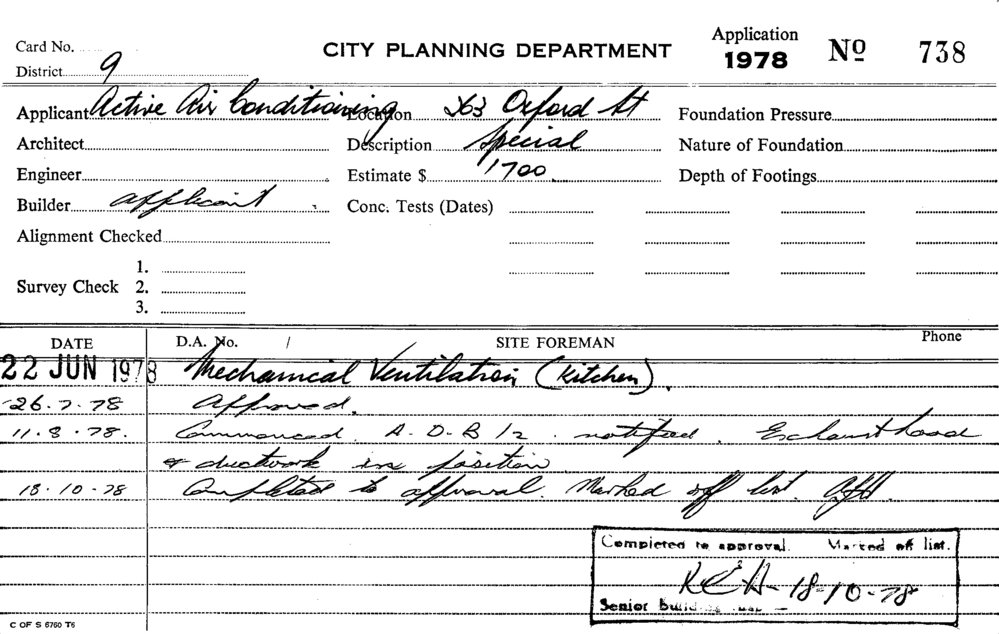 Card No.
CITY PLANNING DEPARTMENT
Application 1978 No 738
District 9
Applicant Active Air Conditioning Location 263 Oxford St Foundation Pressure
Architect Description Special Nature of Foundation
Engineer Estimate $ 1700 Depth of Footings
Builder applicant Conc. Tests (Dates)
Alignment Checked
1.
Survey Check 2.
3.
DATE D.A. No. / SITE FOREMAN Phone
22 JUN 1978 Mechanical Ventilation (Kitchen).
26.7.78 Approved.
11.8.78. Commenced. A.O.B 12. notified. Exhaust hood
& ductwork in position
18.10.78 Completed to approval. Marked off list.
Completed to approval. Marked off list.
18-10-78
Senior
C OF S 6760 T6